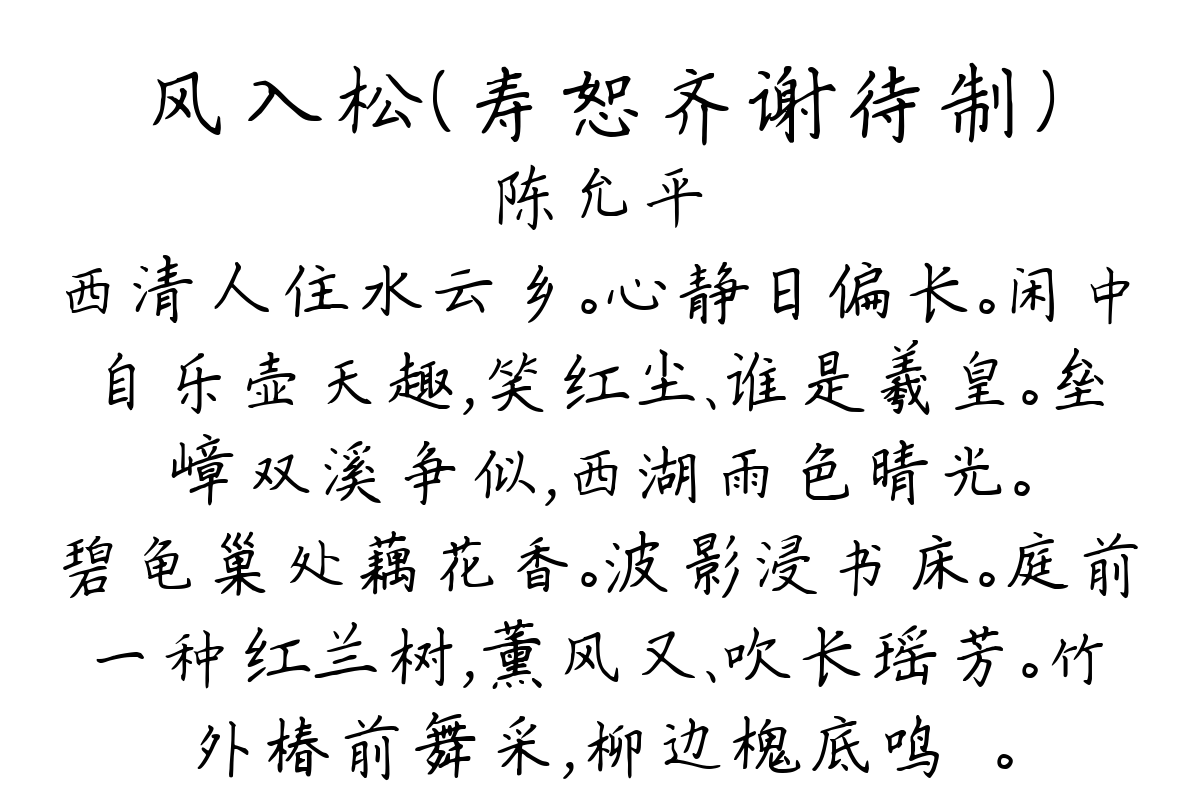 风入松(寿恕齐谢待制)
陈允平
西清人住水云乡。心静日偏长。闲中
自乐壶天趣,笑红尘、谁是羲皇。垒
嶂双溪争似,西湖雨色晴光。
碧龟巢处藕花香。波影浸书床。庭前
一种红兰树,薰风又、吹长瑶芳。竹
外椿前舞采,柳边槐底鸣 。